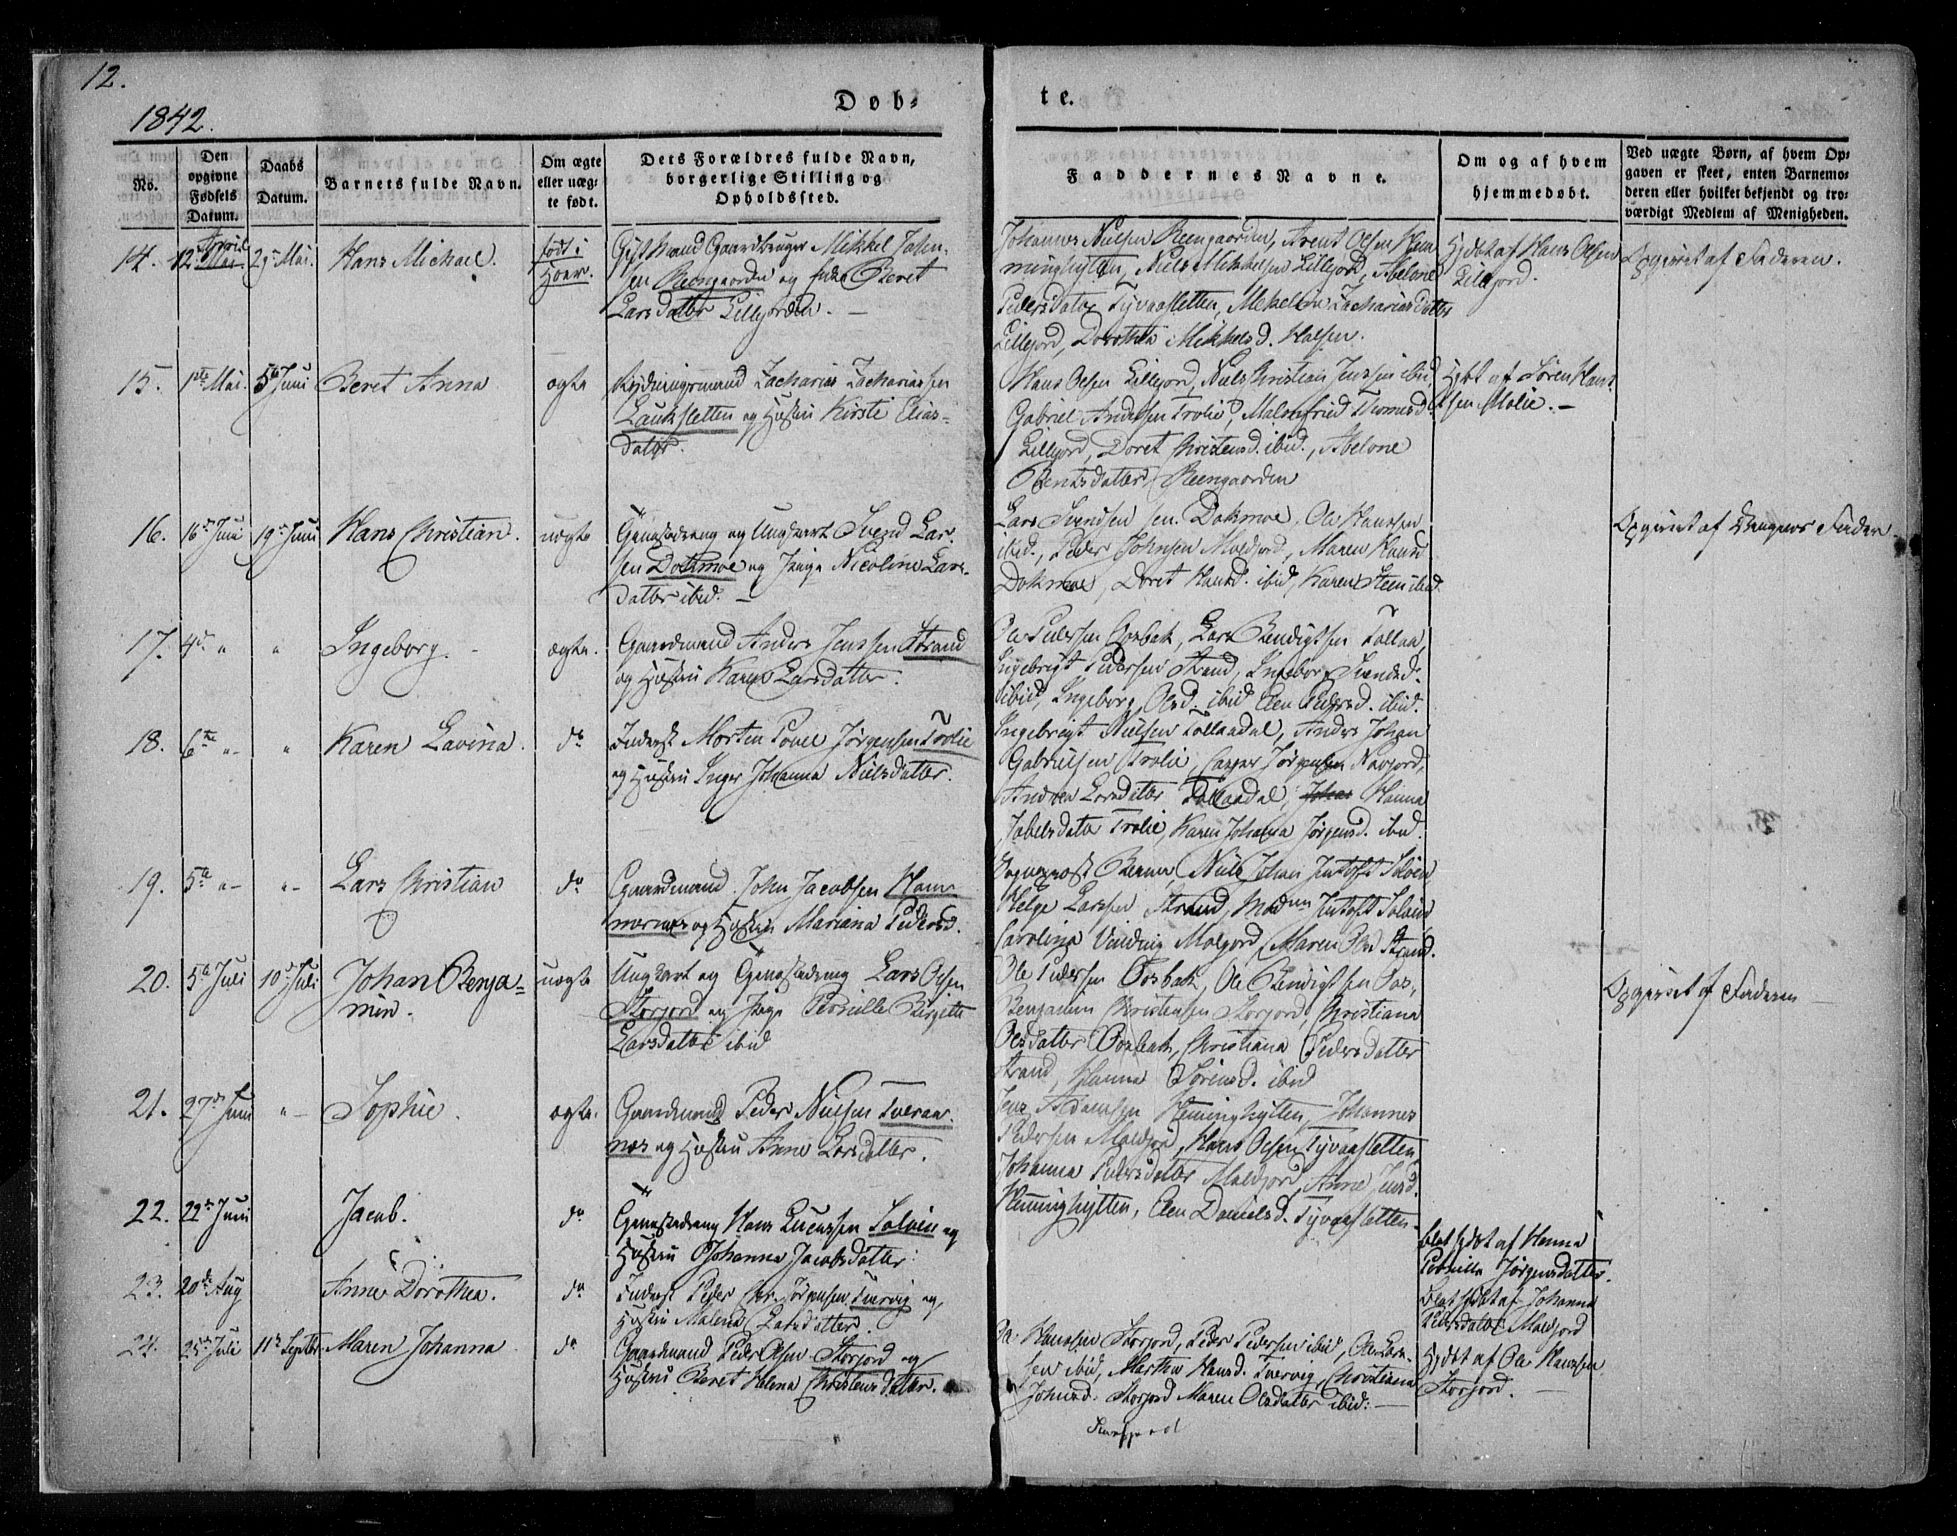 12.
1842.
Døb-
te.
No.
Den opgivne Fødsels Datum.
Daabs Datum.
Barnets fulde Navn.
Om ægte eller uæg-te født.
Dets Forældres fulde Navn, borgerlige Stilling og Opholdssted.
Faddernes Navne.
Om og af hvem hjemmedøbt.
Ved uægte Børn, af hvem Op-gaven er skeet, enten Barnemo-deren eller hvilket bekjendt og tro-værdigt Medlem af Menigheden.
14. 12 April 29 Mai. Hans Michael. født i Hoer.
Gift Mand Gaardbruger Mikkel Johan-
sen Reengaarden og Beret
Larsdatter Lillejorden.
Johannes Nielsen Reengaarden, Arent Olsen Hem-
minghytten, Niels Mikkelsen Lillejord, Abelone
Pedersdatter Tyvaasletten, Zachariasdatter
Lillejord, Dorothea Mikkelsd. Halsen.
Hjdbt af Hans Olsen
Lillejord.
Opgivet af Faderen.
15. 1ste Mai. 5te Juni Beret Anna ægte
Rydningsmand Zacharias Zachariassen
Lauksletten og Hustru Kirsti Elias-
datter.
Hans Olsen Lillejord, Niels Christian Jenssen ibid,
Gabriel Andersen Trolie, Thomasd.
Lillejord, Doret Christensd. ibid., Abelone
Bentsdatter Reengaarden
Hjdbt af Søren Hans
sen Molie.
16. 16de Juni 19de Juni Hans Christian. uægte
Gangsdreng og Ungkarl Svend Lar-
sen Dokmoe og Pige Nicoline Lars-
datter ibid.
Lars Svendsen sen. Dokmoe, Ole Hanssen
ibid., Peder Johnsen Maldjord, Maren Hansd.
Dokmoe, Doret Hansd. ibid, Karen Steen ibid
Opgivet af Faderen.
17. 4de " " Ingeborg. ægte.
Gaardmand Anders Jenssen Strand
og Hustru Karen Larsdatter.
Ole Pedersen Oosbak, Lars Bendigtsen Tollaa,
Ingebrigt Pedersen Strand, Ingeborg Svendsd.
ibid, Ingeborg Olsd. ibid Elen Pedersd. ibid.
18. 6te " " Karen Lavina. do
Inderst Morten Povel Jørgensen Trolie
og Hustru Inger Johanna Nielsdatter.
Ingebrigt Nielsen Tollaadal, Anders Johan
Gabrielsen Trolie, Casper Jørgensen Navjord,
Andrea Larsdatter Tollaadal, Hanna
Trolie, Karen Johanna Jørgensd. ibid.
19. 5te " " Lars Christian do
Gaardmand John Jacobsen Ham-
mernes og Hustru Mariana Pedersd.
Niels Johan Jentoft Solvien
Helge Larssen Strand, Madm Jentoft Solvien
Carolina Maljord, Maren Olsd Strand.
20. 5te Juli 10de Juli Johan Benja-
min. uægte
Ungkarl og Gangsdreng Lars Olsen
Storjord og Pige Pernille Birgitte
Larsdatter ibid
Ole Pedersen Oosbak, Ole Bendigtsen Oos,
Benjamin Christensen Storjord, Christiana
Olsdatter Oosbak, Christiana Pedersdatter
Strand, Hanna Sørensd. ibid
Opgivet af Faderen
21. 27de Juni " Sophie. ægte.
Gaardmand Peder Nielsen Tveraa-
nes og Hustru Anne Larsdatter.
Jens Adamsen Heminghytten, Johannes
Pedersen Maldjord, Hans Olsen Tyvaasletten,
Johanna Pedersdatter Maldjord, Anne Jensd.
Heminghytten, Elen Danielsd. Tyvaasletten.
22. 22de Juni Jacob. do
Gangsdreng Hans Lucassen Solvien og
Hustru Johanna Jacobsdatter.
blot hjdbt af Hanna
Pernille Jørgensdatter.
23. 20de Aug Anne Dorothea. do
Inderst Peder Jørgensen Tvervig og
Hustru Malena Larsdatter.
blot hjdbt af Johanna
Pedersdatter Maldjord
24. 25de Juli 11te Septbr. Maren Johanna do
Gaardmand Peder Olsen Storjord og
Hustru Beret Helena Christensdatter.
Ole Hanssen Storjord, Peder Pedersen ibid, Ole Lars-
sen ibid, Martha Hansd. Tvervig, Christiana
Johnsd. Storjord Maren Olsdatter ibid:
Hjdbt af Ole Hanssen
Storjord.